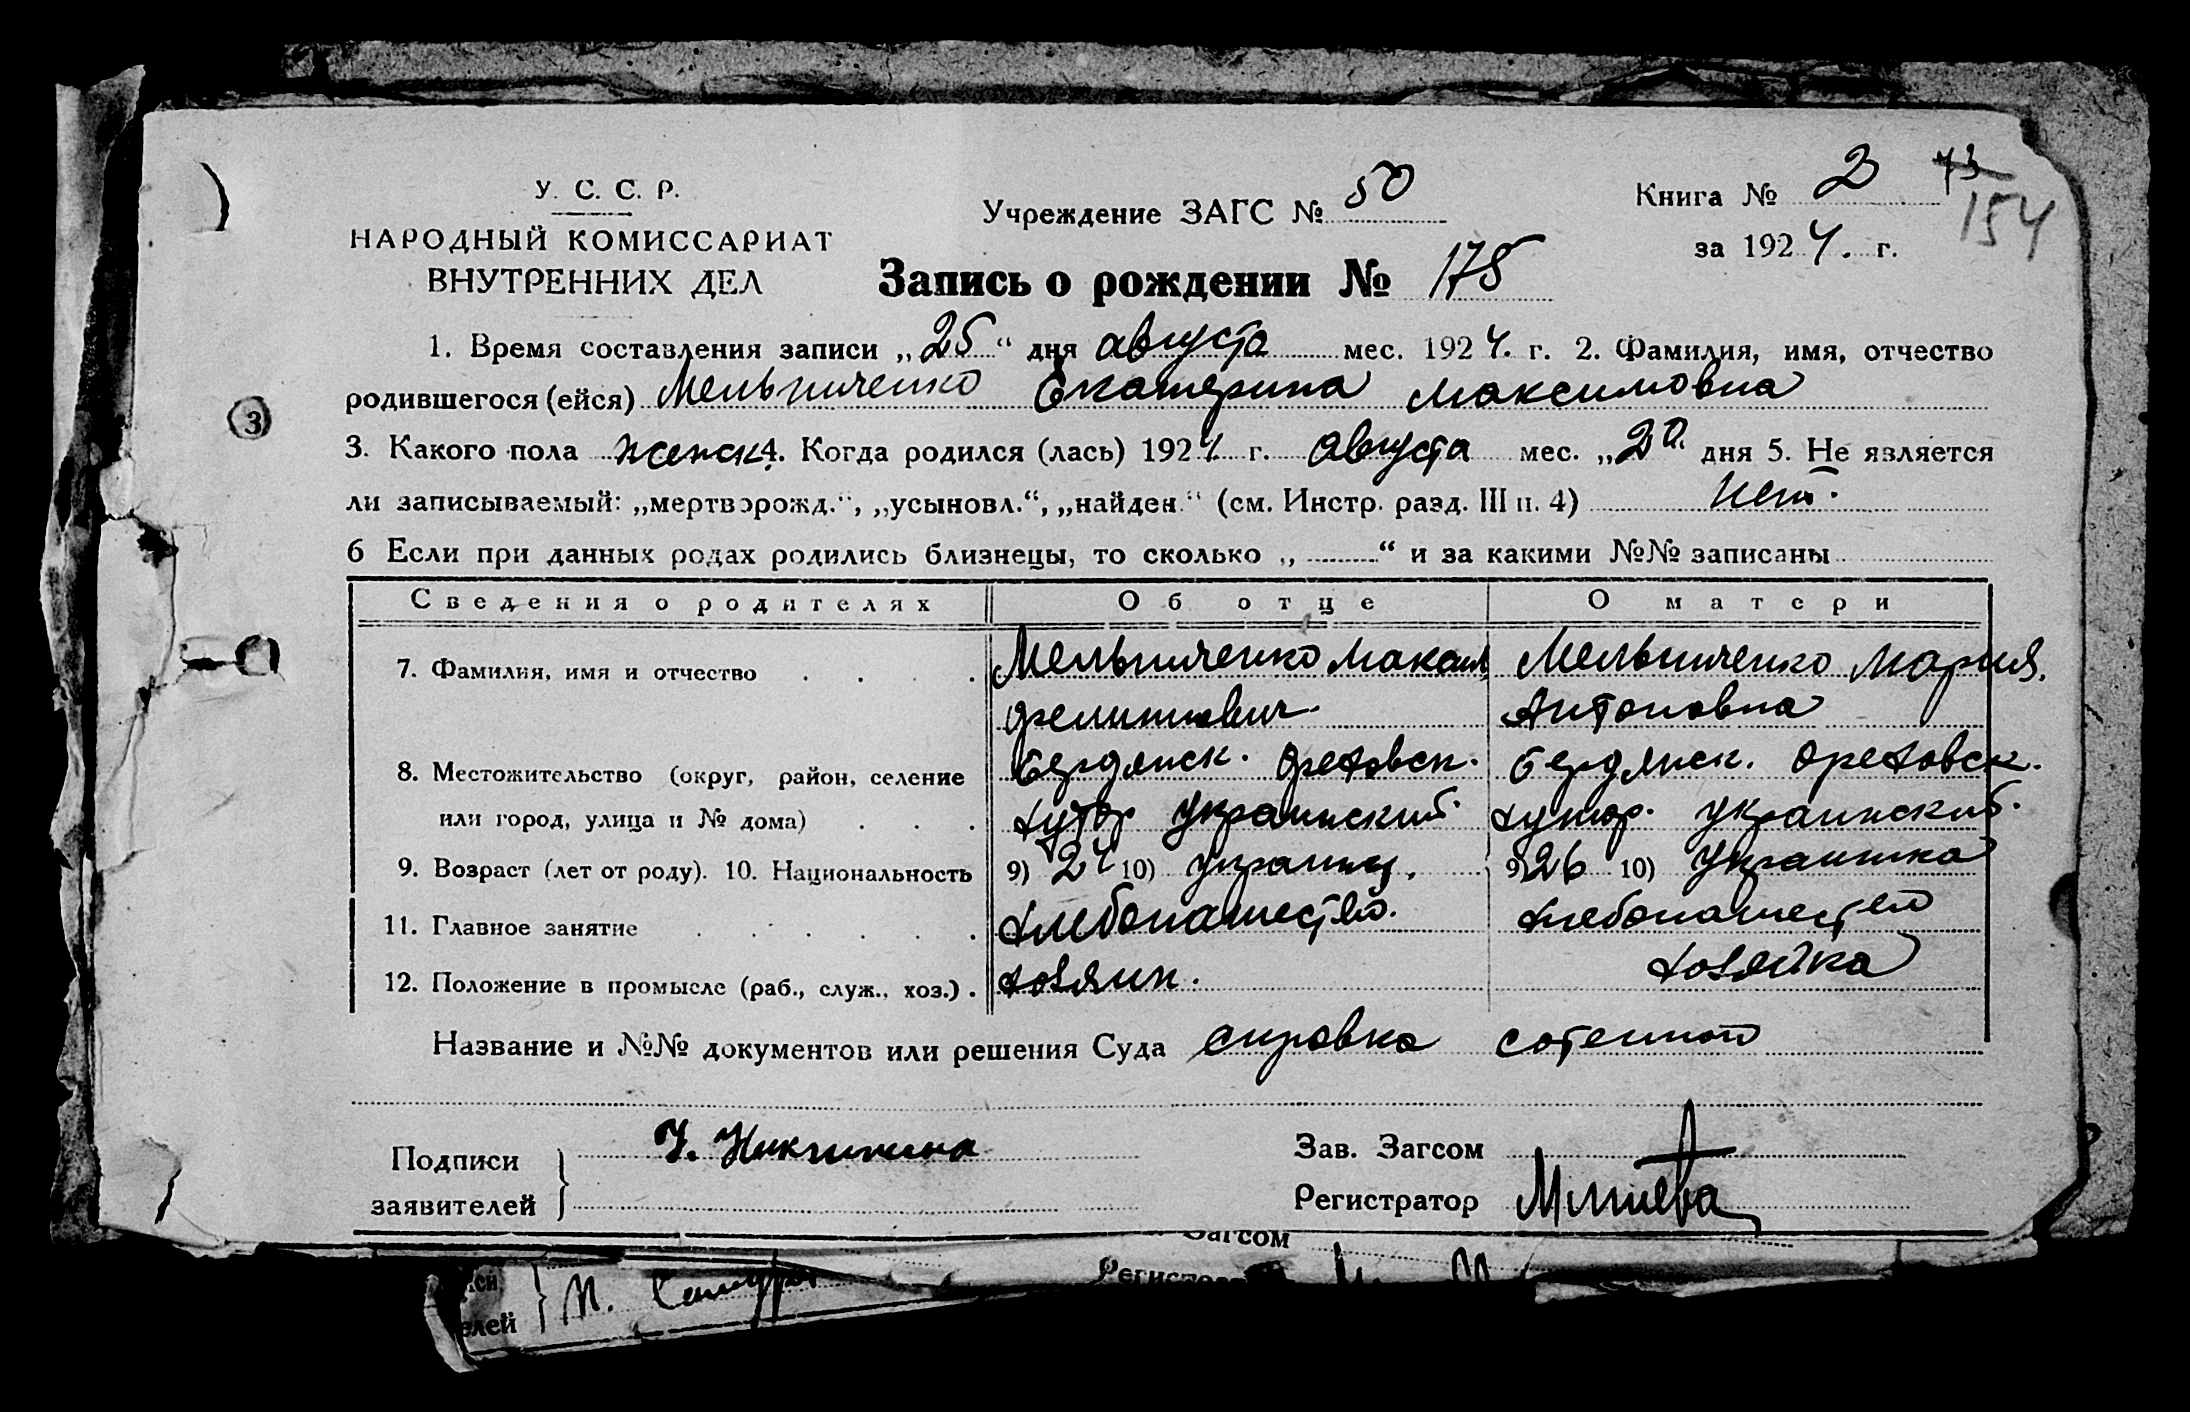 У. С. С. Р.
НАРОДНЫЙ КОМИССАРИАТ
ВНУТРЕННИХ ДЕЛ
Учреждение ЗАГС № 50
Книга № 2 73
154
за 1924. г.
Запись о рождении № 175
1. Время составления записи „25“ дня августа мес. 1924. г. 2. Фамилия, имя, отчество
родившегося (ейся) Мельниченко Екатерина Максимовна
3. Какого пола женск. 4. Когда родился (лась) 1924 г. августа мес. „20. дня 5. Не является
ли записываемый: „мертворожд.“, „усыновл.“, „найден.“ (см. Инстр. разд. III п. 4) нет.
6 Если при данных родах родились близнецы, то сколько „ “ и за какими №№ записаны
Сведения о родителях Об отце О матери
7. Фамилия, имя и отчество Мельниченко Максим Мельниченко Мария.
Филиппович. Антоновна
8. Местожительство (округ, район, селение Бердянск. Ореховск. Бердянск. Ореховск.
или город, улица и № дома) хутор Украинский. хутор. Украинский.
9. Возраст (лет от роду). 10. Национальность 9) 24 10) украинц. 9) 26 10) Украинка
11. Главное занятие хлебопашество. хлебопашество
12. Положение в промысле (раб., служ., хоз.) . хозяин. хозяйка
Название и №№ документов или решения Суда справка сотенного
Подписи
заявителей
У. Никитина
Зав. Загсом
Регистратор
Загсом
М.
елей